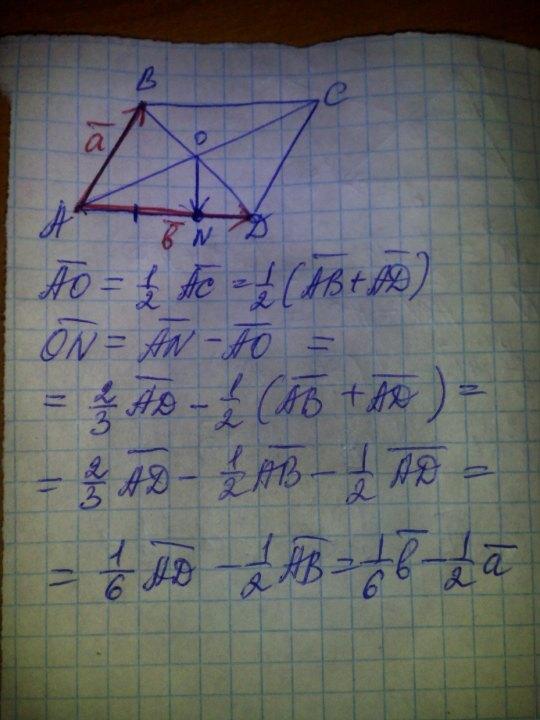 B
C
a̅
O
A
b̅
N
D
A̅O̅ = 1/2 A̅C̅ = 1/2 (A̅B̅ + A̅D̅)
O̅N̅ = A̅N̅ - A̅O̅ =
= 2/3 A̅D̅ - 1/2 (A̅B̅ + A̅D̅) =
= 2/3 A̅D̅ - 1/2 A̅B̅ - 1/2 A̅D̅ =
= 1/6 A̅D̅ - 1/2 A̅B̅ = 1/6 b̅ - 1/2 a̅